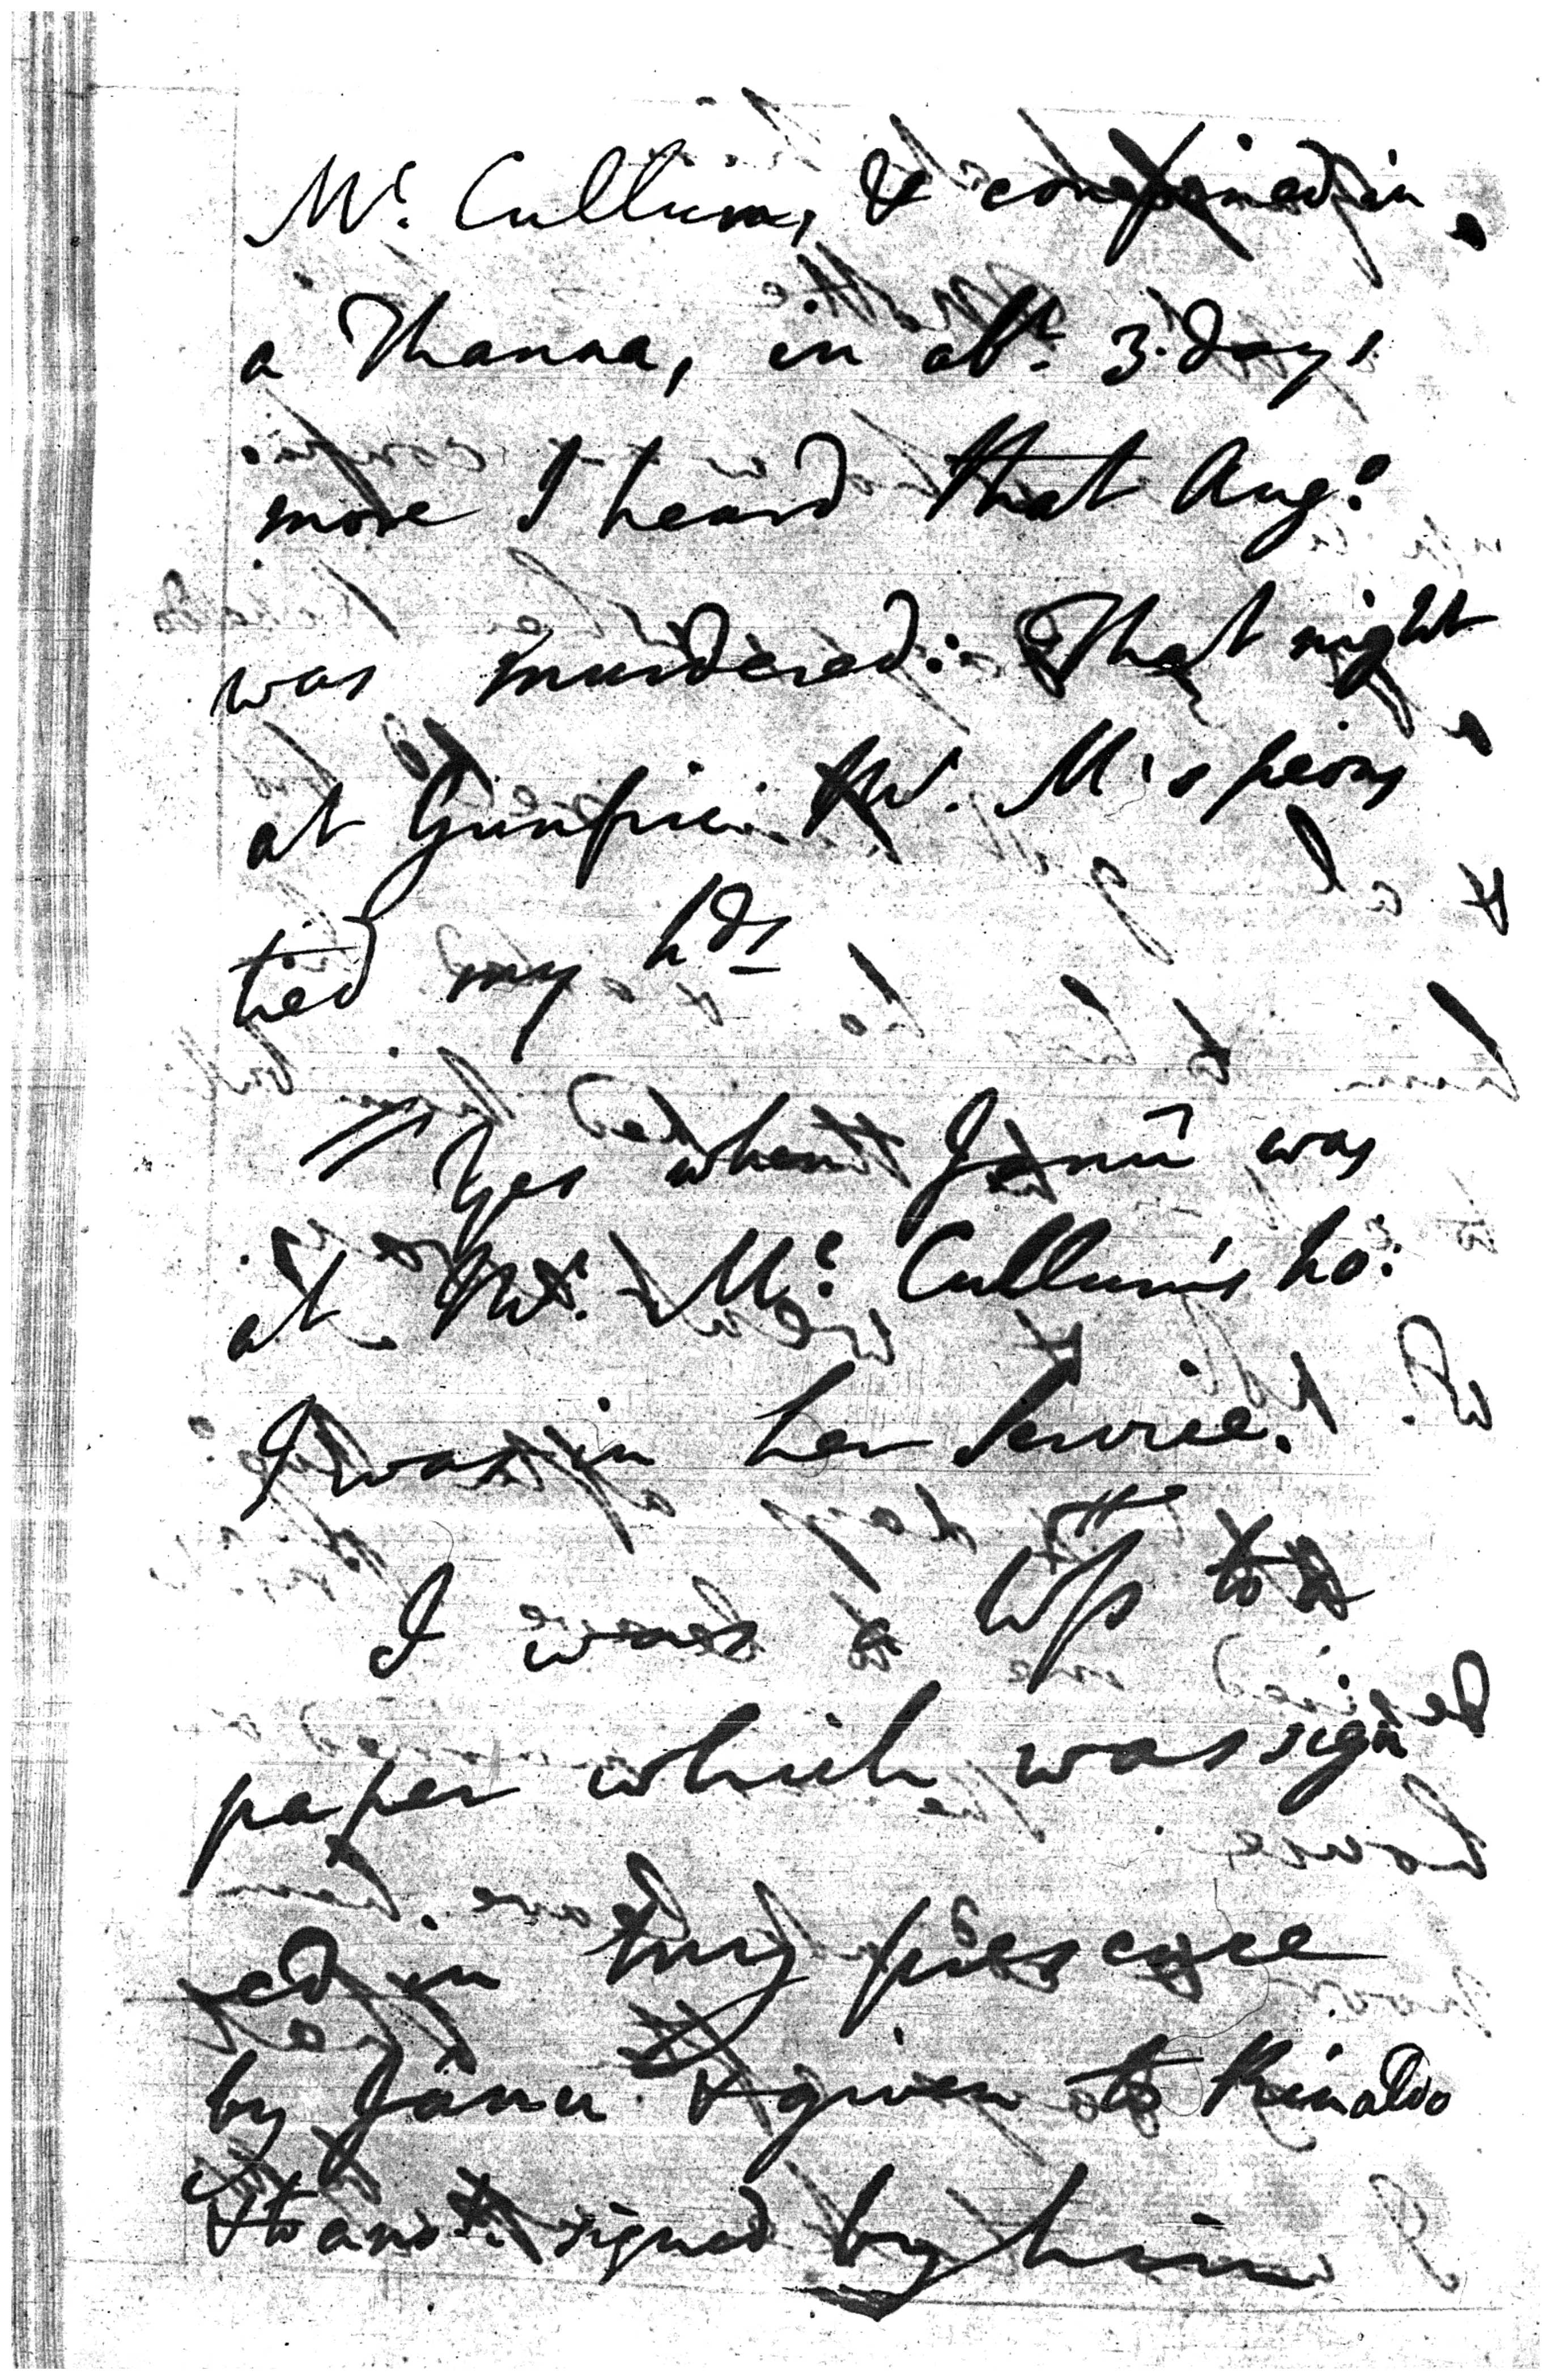 Mc. Cullum, & confined in
a Thanna, in abt. 3 days
more I heard that Aug:o
was murdered: That night
at Mr. Mc's peons
tied my hds
Yes when Janū was
at Mr. Mc. Cullum's ho:
I was in her Service.
I was a Wss to a
paper which was sign
ed in my presence
by Janu & given to Rinaldo
signed by him